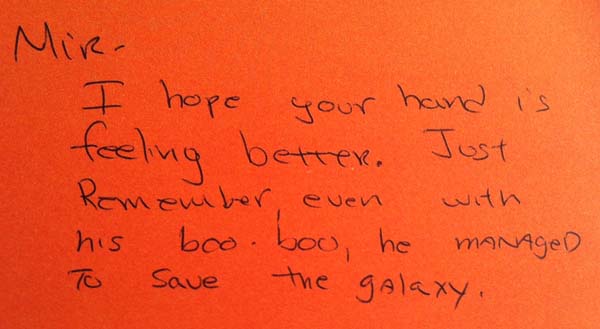 Mir-
I hope your hand is
feeling better. Just
Remember, even with
his boo-boo, he MANAGED
To save the galaxy.